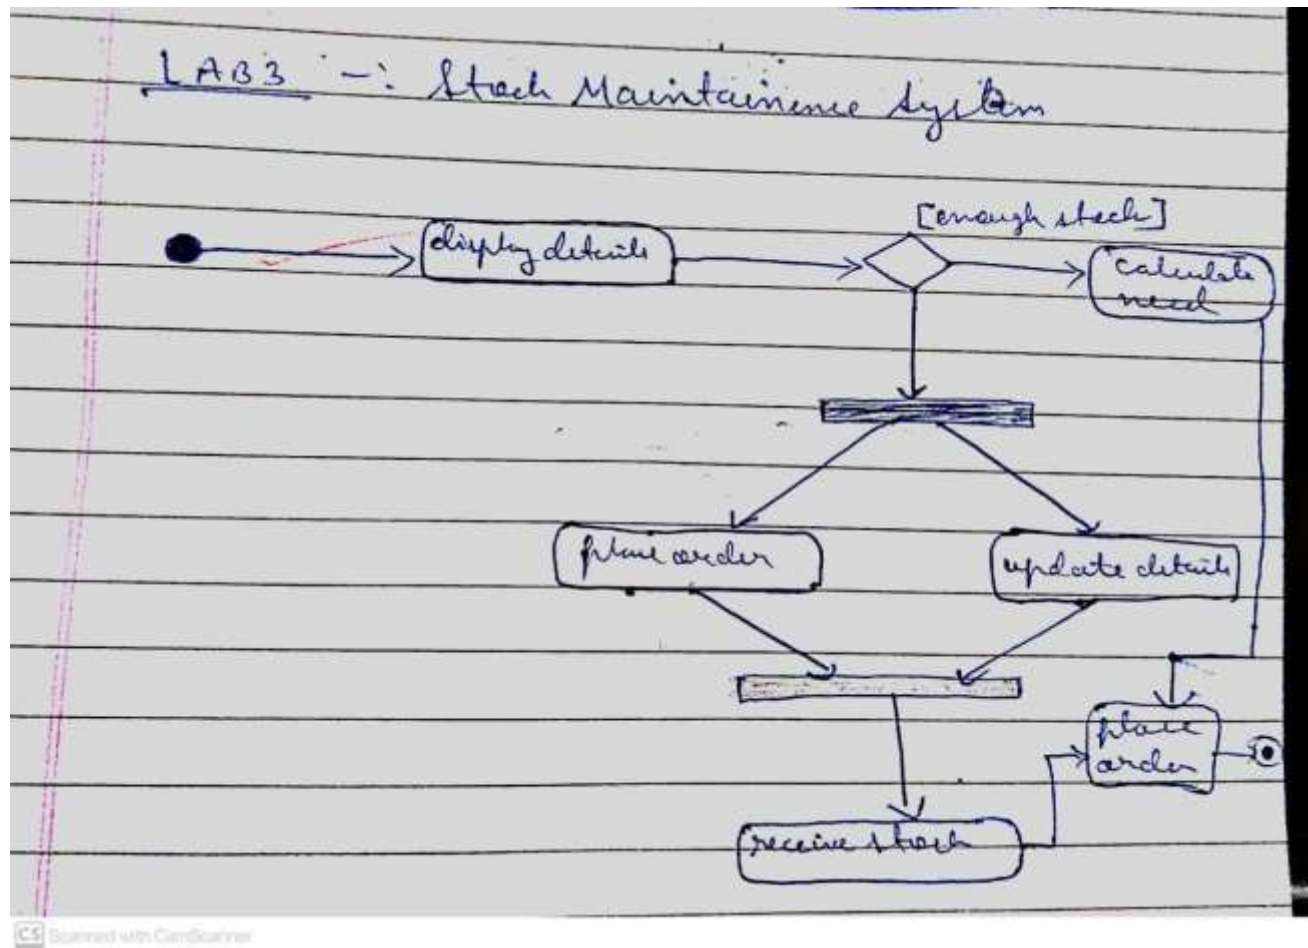 LAB3 -: Stock Maintainence System
[enough stock]
display details
calculate
need
place order
update details
place
order
receive stock
CS Scanned with CamScanner